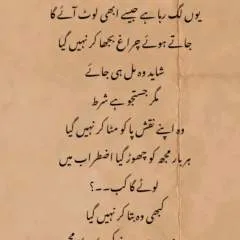 یوں لگ رہا ہے جیسے ابھی لوٹ آئے گا
جاتے ہوئے چراغ بجھا کر نہیں گیا
شاید وہ مل ہی جائے
مگر جستجو ہے شرط
وہ اپنے نقش پا کو مٹا کر نہیں گیا
ہر بار مجھ کو چھوڑ گیا اضطراب میں
لوٹے گا کب۔۔؟
کبھی وہ بتا کر نہیں گیا